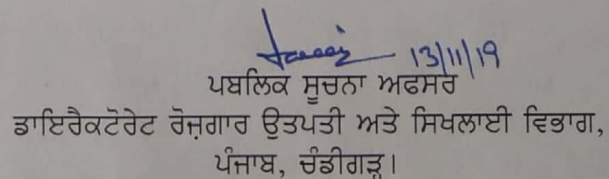 13/11/19
ਪਬਲਿਕ ਸੂਚਨਾ ਅਫਸਰ
ਡਾਇਰੈਕਟੋਰੇਟ ਰੋਜ਼ਗਾਰ ਉਤਪਤੀ ਅਤੇ ਸਿਖਲਾਈ ਵਿਭਾਗ,
ਪੰਜਾਬ, ਚੰਡੀਗੜ੍ਹ।